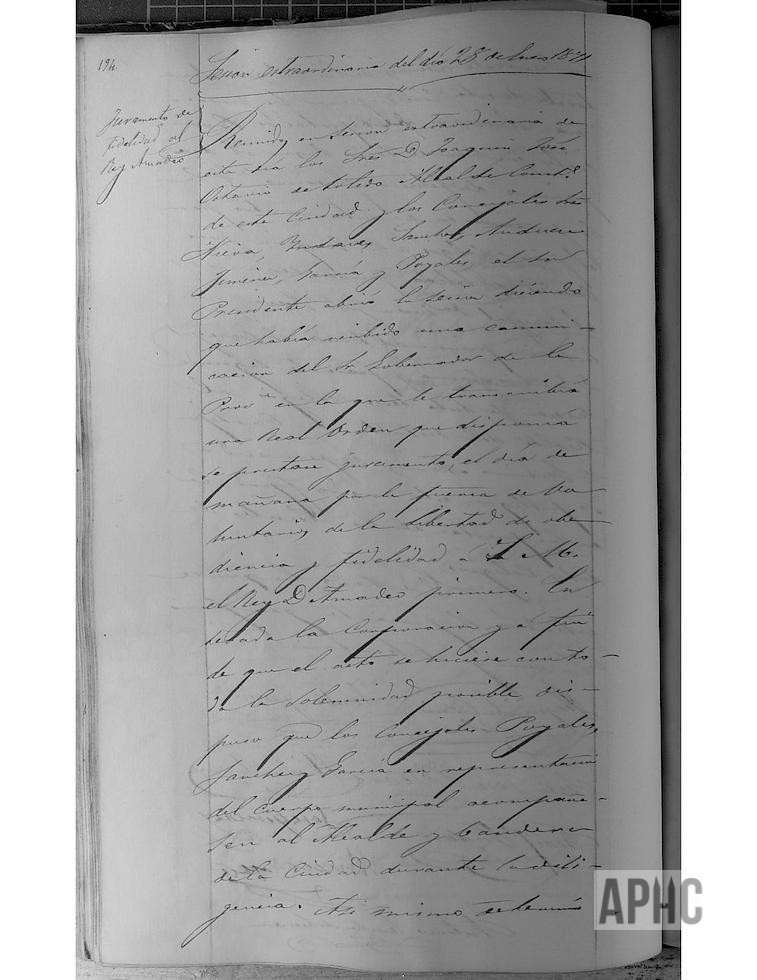 194.
Sesion extraordinaria del dia 28 de Enero 1871
Juramento de
fidelidad al
Rey Amadeo
Reunidos en sesion extraordinaria de
este dia los Sres D. Joaquin José
Octavio de Toledo Alcalde Constl.
de esta Ciudad y los Concejales Sres
Nieva, Sanchez,
Jimenez, Garcia y Poyales, el Sr
Presidente abrió la sesion diciendo
que habia recibido una comuni-
cacion del Sr Gobernador de la
Prova en la que le transcribia
una Real Orden que disponia
se prestase juramento, el dia de
mañana por la fuerza de Vo-
luntarios de la Libertad de obe-
diencia y fidelidad á S. M.
el Rey D. Amadeo primero. En
terada la Corporacion y a fin
de que el acto se hiciese con to-
da la solemnidad posible dis-
puso que los Concejales Poyales,
Sanchez y Garcia en representacion
del cuerpo municipal acompaña-
sen al Alcalde y bandera
de la Ciudad durante la dili-
gencia. Asi mismo
APHC